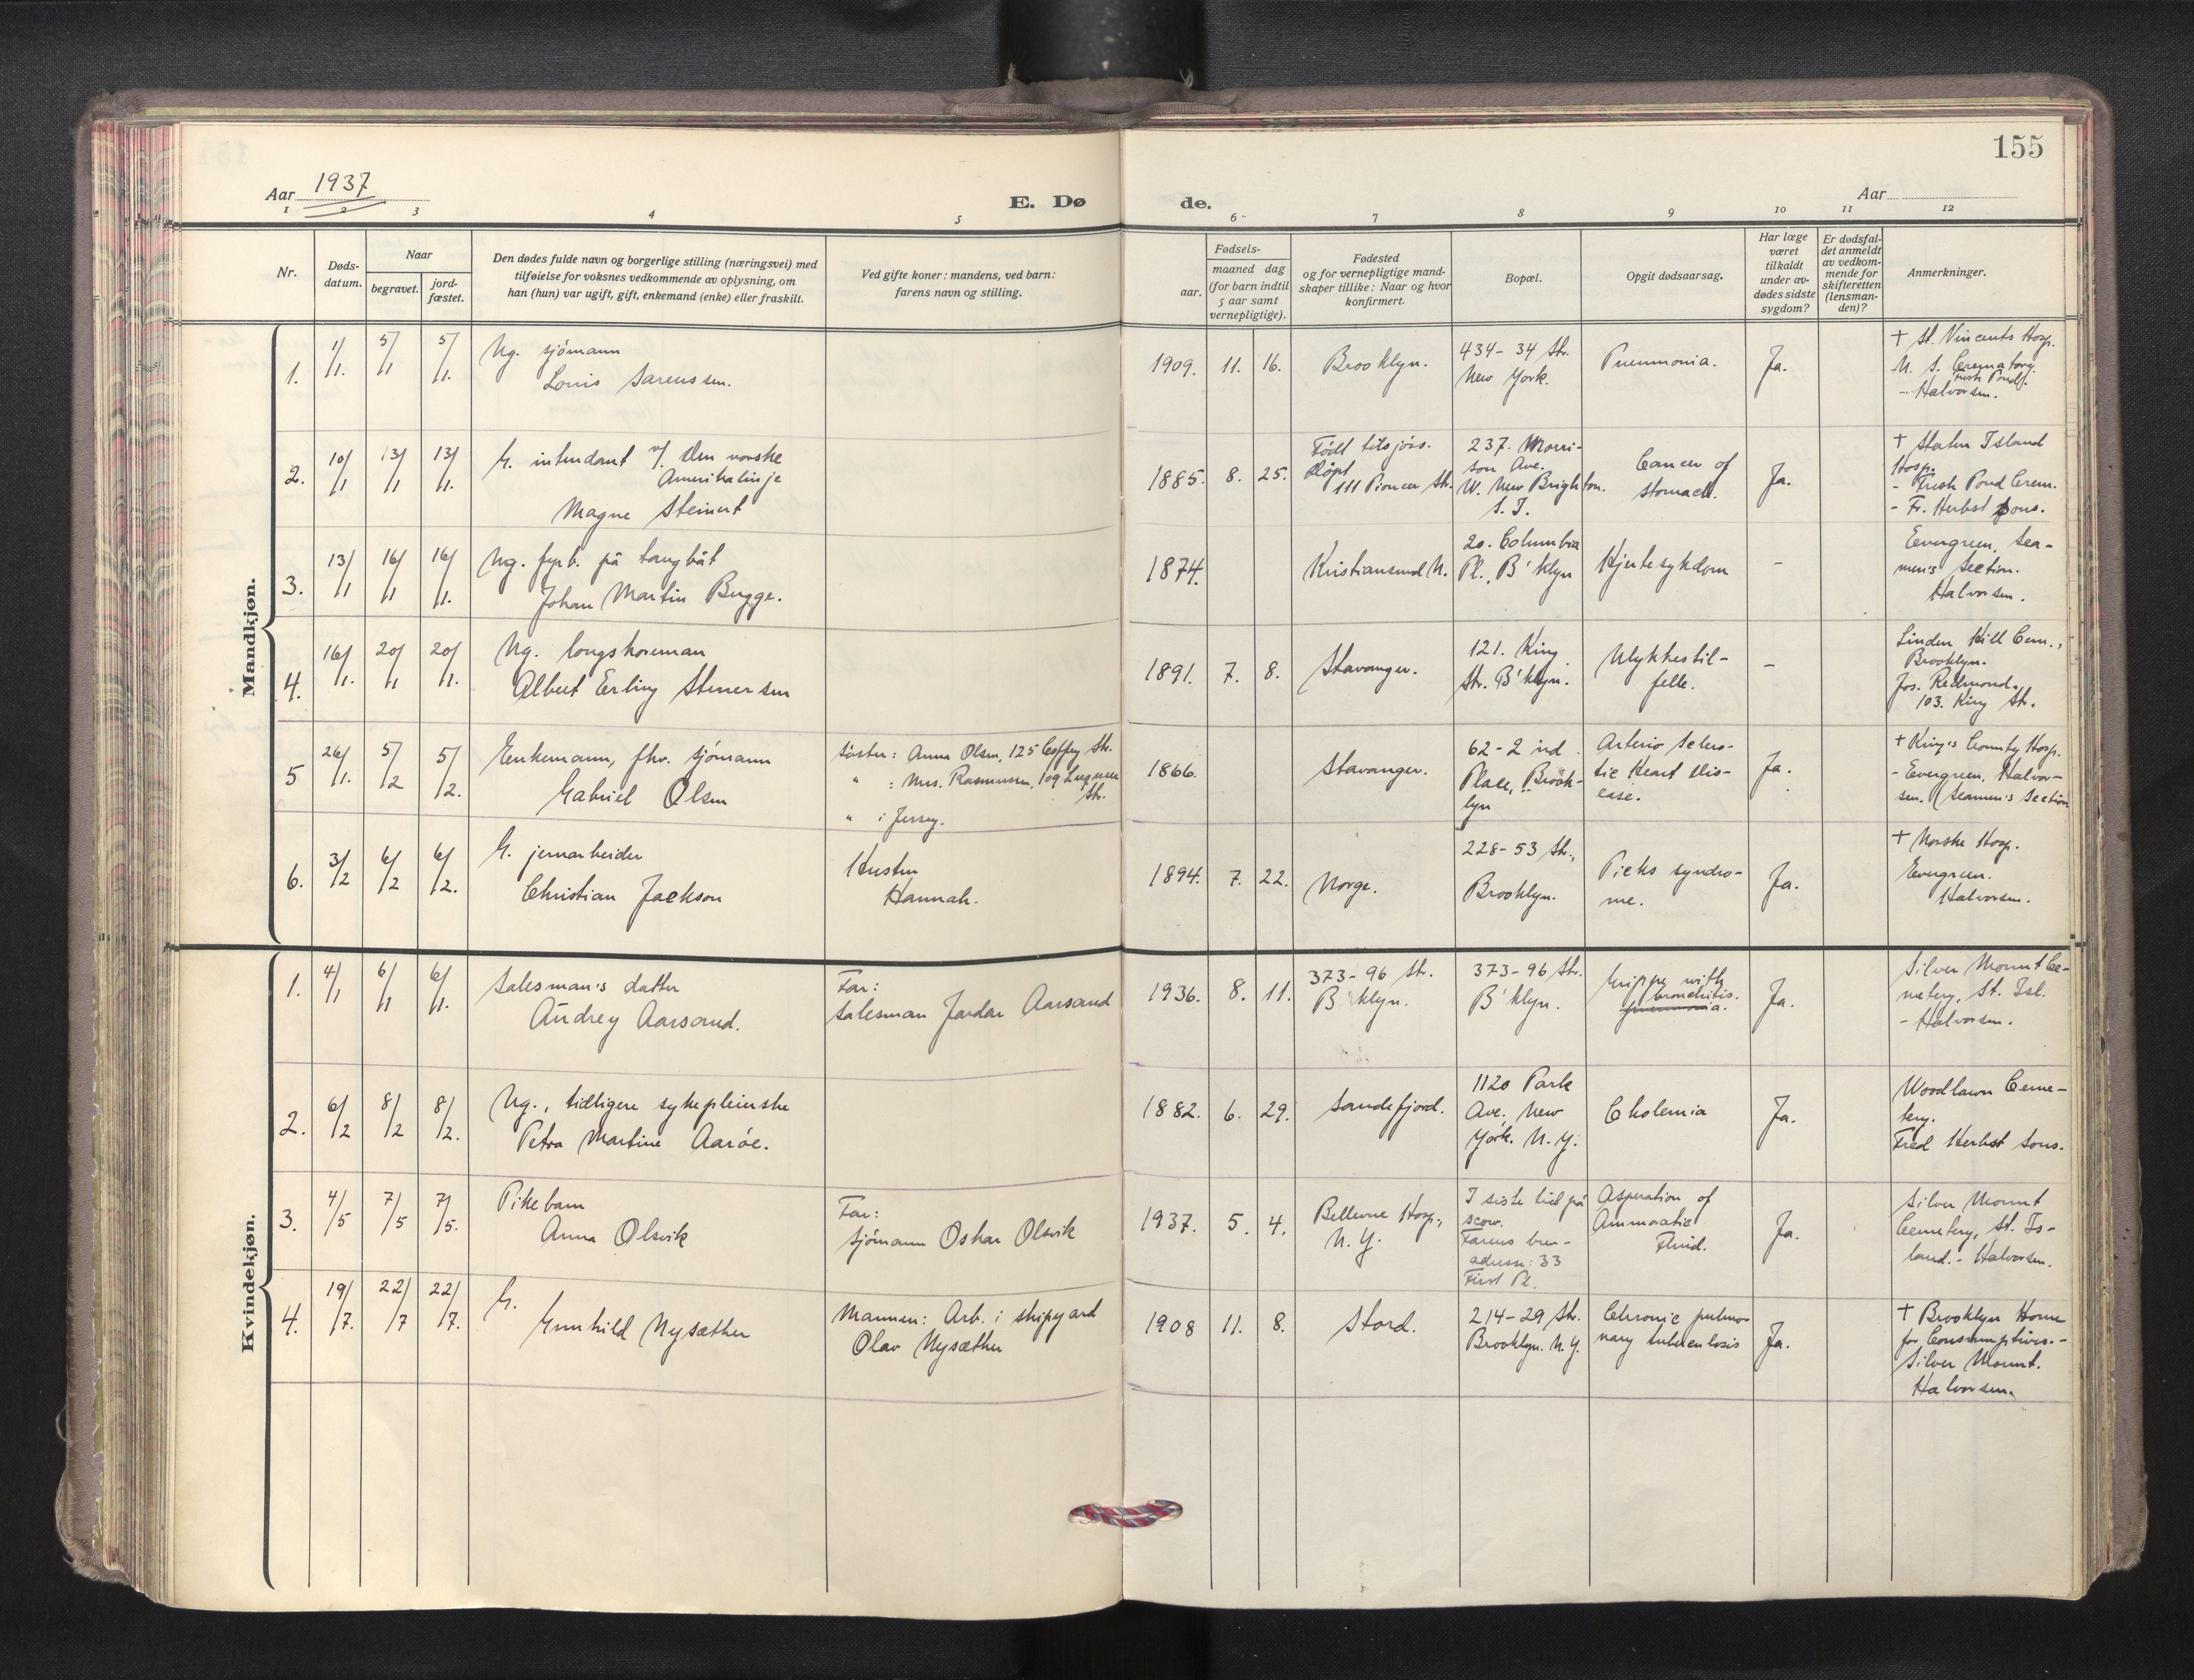 155
Aar 1937
E. Dø
de.
Aar
1 2 3 4 5 6 7 8 9 10 11 12
Nr.
Døds-
datum.
Naar
begravet.
jord-
fæstet.
Den dødes fulde navn og borgerlige stilling (næringsvei) med
tilføielse for voksnes vedkommende av oplysning, om
han (hun) var ugift, gift, enkemand (enke) eller fraskilt.
Ved gifte koner: mandens, ved barn:
farens navn og stilling.
Fødsels-
aar.
maaned dag
(for barn indtil
5 aar samt
vernepligtige).
Fødested
og for vernepligtige mand-
skaper tillike: Naar og hvor
konfirmert.
Bopæl.
Opgit dødsaarsag.
Har læge
været
tilkaldt
under av-
dødes sidste
sygdom?
Er dødsfal-
det anmeldt
av vedkom-
mende for
skifteretten
(lensman-
den)?
Anmerkninger.
Mandkjøn.
1.
1/1.
5/1
5/1.
Ug. sjömann
Louis Sarenssen.
1909. 11. 16.
Brooklyn.
434-34 Str.
New York.
Pneumonia.
Ja.
† St. Vincents Hosp.
U. S. Crematory
Fresh Pond.
- Halvorsen.
2.
10/1
13/1
13/1.
G. intendant v/ Den norske
Amerikalinje
Magne Steinert
1885. 8. 25.
Födt tilsjös.
Döpt
111 Pioneer Str.
237. Morri-
son Ave.
W. New Brighton.
S. I.
Cancer of
stomach.
Ja.
† Staten Island
Hosp.
- Fresh Pond Crem.
- Fr. Herbst Sons.
3.
13/1
16/1
16/1.
Ug. fyrb. på taugbåt
Johan Martin Bugge.
1874.
Kristiansund N.
20. Columbia
Pl., B'klyn
Hjertesykdom
-
Evergreen, Sea-
men's Section.
Halvorsen.
4.
16/1.
20/1
20/1.
Ug. longshoreman
Albert Erling Stenersen
1891. 7. 8.
Stavanger.
121. King
Str. B'klyn.
Ulykkestil-
felle.
-
Linden Hill Cem.,
Brooklyn.
Jos. Redmond.
103. King Str.
5
26/1.
5/2
5/2.
Enkemann, fhv. sjömann
Gabriel Olsen
Søster: Anna Olsen, 125 Coffey Str.
" : Mrs. Rasmussen, 109 Luquer
Str.
" i Jersey.
1866.
Stavanger.
62-2nd
Place, Brook-
lyn
Arterio Sclero-
tic Heart Dis-
ease.
Ja.
† King's County Hosp.
- Evergreen, Halvor-
sen. (Seamen's Section
6.
3/2
6/2
6/2.
G. jernarbeider
Christian Jackson
Hustru
Hannah.
1894. 7. 22.
Norge.
228-53 Str.,
Brooklyn.
Picks syndro-
me.
Ja.
† Norske Hosp.
Evergreen.
Halvorsen.
Kvindekjøn.
1.
4/1
6/1
6/1.
Salesman's datter
Audrey Aarsand.
Far:
Salesman Jardar Aarsand
1936. 8. 11.
373-96 Str.
B'klyn.
373-96 Str.
B'klyn.
Grippe with
bronchitis.
pneumonia.
Ja.
Silver Mount Ce-
metery, St. Isl.
- Halvorsen.
2.
6/2
8/2
8/2.
Ug., tidligere sykepleierske
Petra Martine Aaröe.
1882. 6. 29.
Sandefjord.
1120 Park
Ave. New
York. N.Y.
Cholemia
Ja.
Woodlawn Ceme-
tery.
Fred Herbst Sons.
3.
4/5
7/5
7/5.
Pikebarn
Anna Olsvik
Far:
Sjömann Oskar Olsvik
1937. 5. 4.
Bellevue Hosp.,
N.Y.
I siste tid på
scow.
Farens brev-
adresse: 33
First Pl.
Asperation of
Ammoratic
Fluid.
Ja.
Silver Mount
Cemetery, St. Is-
land. - Halvorsen.
4.
19/7.
22/7
22/7.
G.
Gunhild Nysæther
Mannen: Arb. i skipyard
Olav Nysæther
1908 11. 8.
Stord.
214-29 Str.
Brooklyn. N.Y.
Chronic pulmo-
nary tuberculosis
Ja.
† Brooklyn Home
for Consumptives. -
Silver Mount.
Halvorsen.